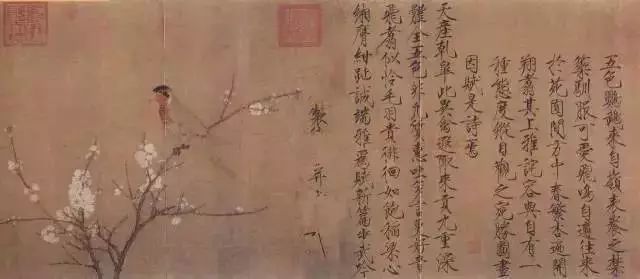 五色鸚鵡來自嶺表養之禁
籞馴服可愛飛鳴自適往來
於苑囿間方中春繁杏遍開
翔翥其上雅詫容與自有一
種態度縱目觀之宛勝圖畫
因賦是詩焉
天產乾皋此異禽遐陬來貢九重深
體全五色非凡質惠吐多言更好音
飛翥似憐毛羽貴徘徊如飽稻粱心
緗膺紺趾誠端雅為賦新篇步武吟
製